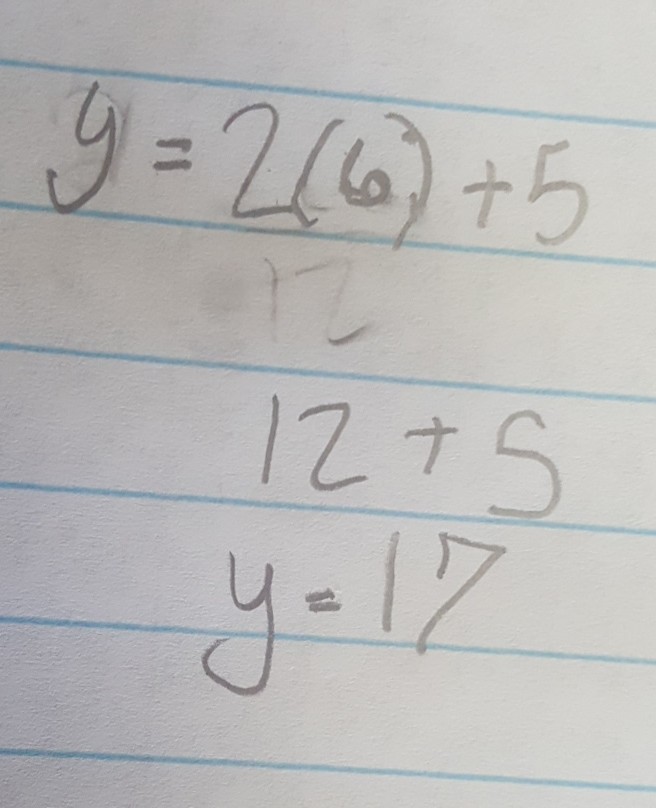 y = 2(6) + 5
12
12 + 5
y = 17